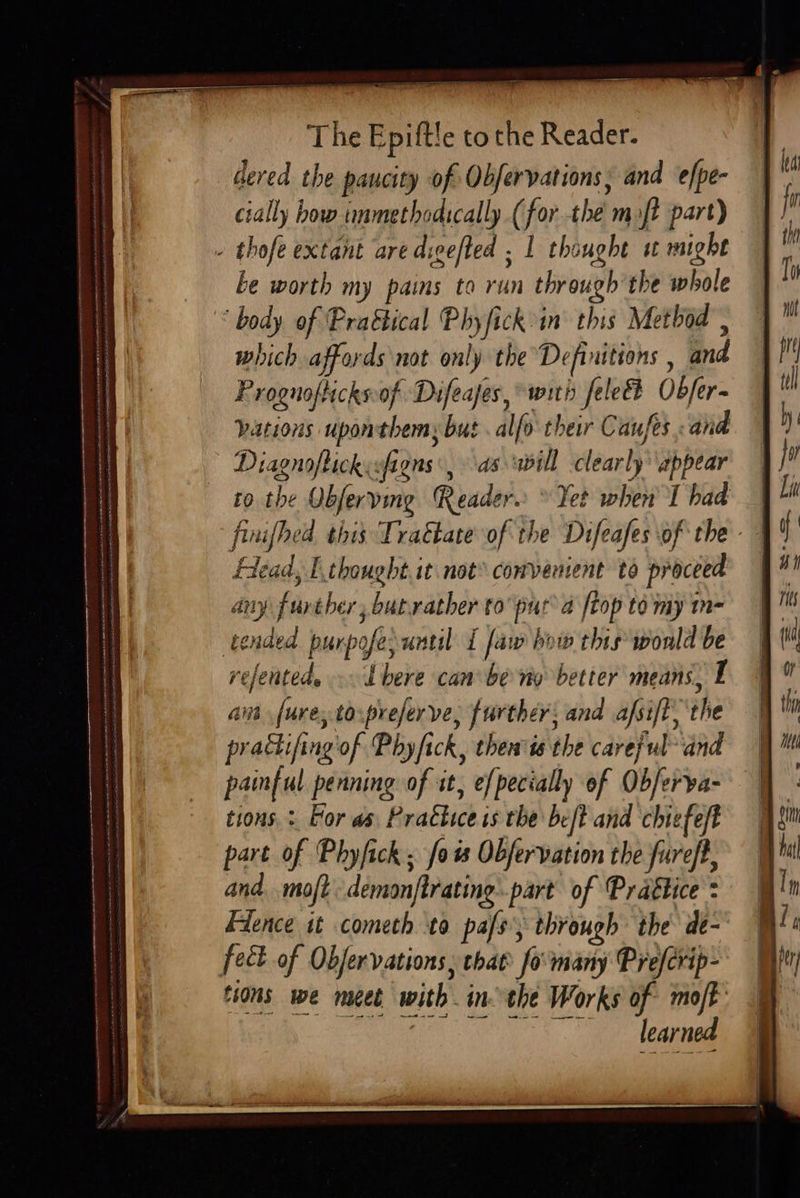 The Epiſtle to the Reader.
dered the paucity of Obſervations, and eſpe-
cially how immethodically (for the moſt part)
thoſe extant are digeſted ; I thought it might
be worth my pains to run through the whole
body of Practical Phyſick in this Method ,
which affords not only the Definitions , and
Prognoſticks of Diſeaſes, with ſelect Obſer-
vations upon them; but alſo their Cauſes and
Diagnoſtick ſigns , as will clearly appear
to the Obſerving Reader. Yet when I had
finiſhed this Tractate of the Diſeaſes of the
Head, I thought it not convenient to proceed
any further , but rather to put a ſtop to my in-
tended purpoſe, until I ſaw how this would be
reſented. There can be no better means, I
am ſure, to preſerve, further, and aſsiſt, the
practiſing of Phyſick, then is the careful and
painful penning of it, eſpecially of Obſerva-
tions : For as Practice is the beſt and chiefeſt
part of Phyſick ; ſo is Obſervation the ſureſt,
and moſt demonſtrating part of Practice :
Hence it cometh to paſs, through the de-
fect of Obſervations, that ſo many Preſcrip-
tions we meet with in the Works of moſt
learned